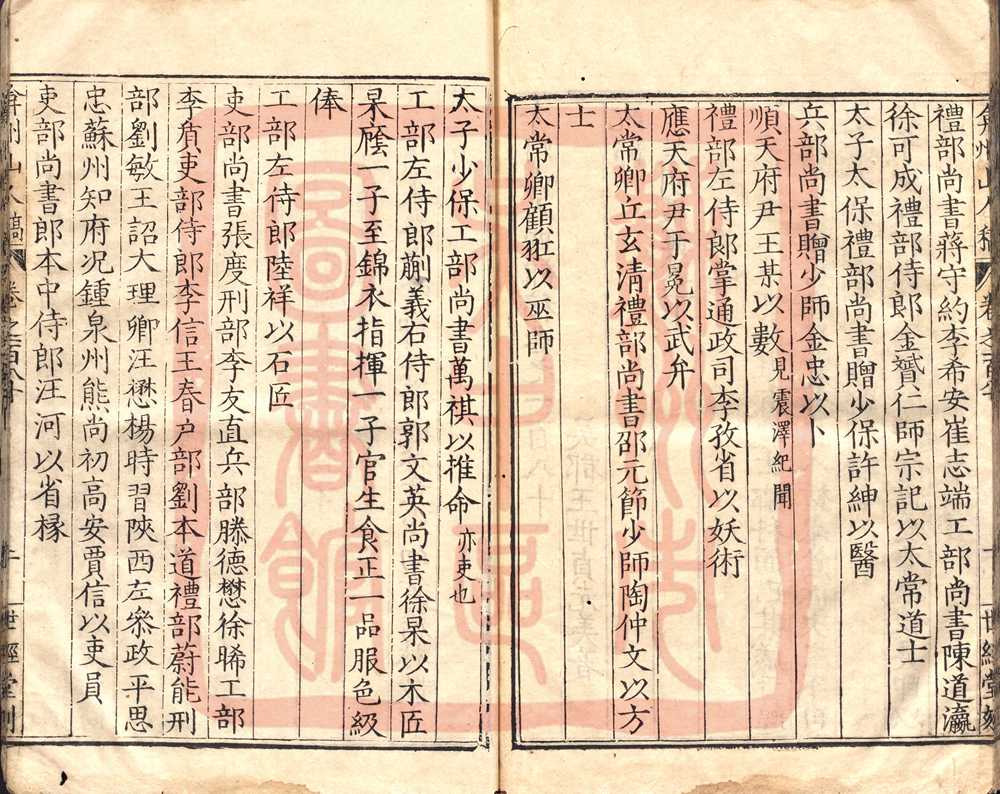 弇州山人稿 卷之一百 世經堂刻
禮部尚書蔣守約李希安崔志端工部尚書陳道瀛
徐可成禮部侍郎金贇仁師宗記以太常道士
太子太保禮部尚書贈少保許紳以醫
兵部尚書贈少師金忠以卜
順天府尹王某以數見震澤紀聞
禮部左侍郎掌通政司李孜省以妖術
應天府尹于冕以武弁
太常卿丘玄清禮部尚書邵元節少師陶仲文以方
士
太常卿顧玒以巫師
太子少保工部尚書萬祺以推命亦吏也
工部左侍郎蒯義右侍郎郭文英尚書徐杲以木匠
杲廕一子至錦衣指揮一子官生食正一品服色級
俸
工部左侍郎陸祥以石匠
吏部尚書張度刑部李友直兵部滕德懋徐晞工部
李質吏部侍郎李信王春户部劉本道禮部蔚能刑
部劉敏王詔大理卿汪懋楊時習陝西左叅政平思
忠蘇州知府况鍾泉州熊尚初高安賈信以吏員
吏部尚書郎本中侍郎汪河以省椽
弇州山人稿 卷之一百 世經堂刻